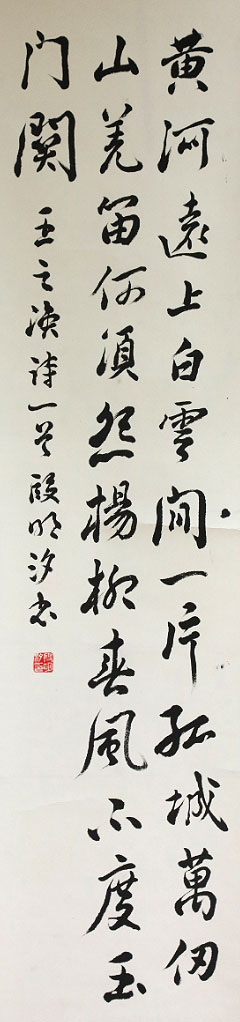 黄河遠上白雲间一片孤城萬仞
山羌笛何須怨楊柳春風不度玉
门關
王之渙诗一首 段明汐书